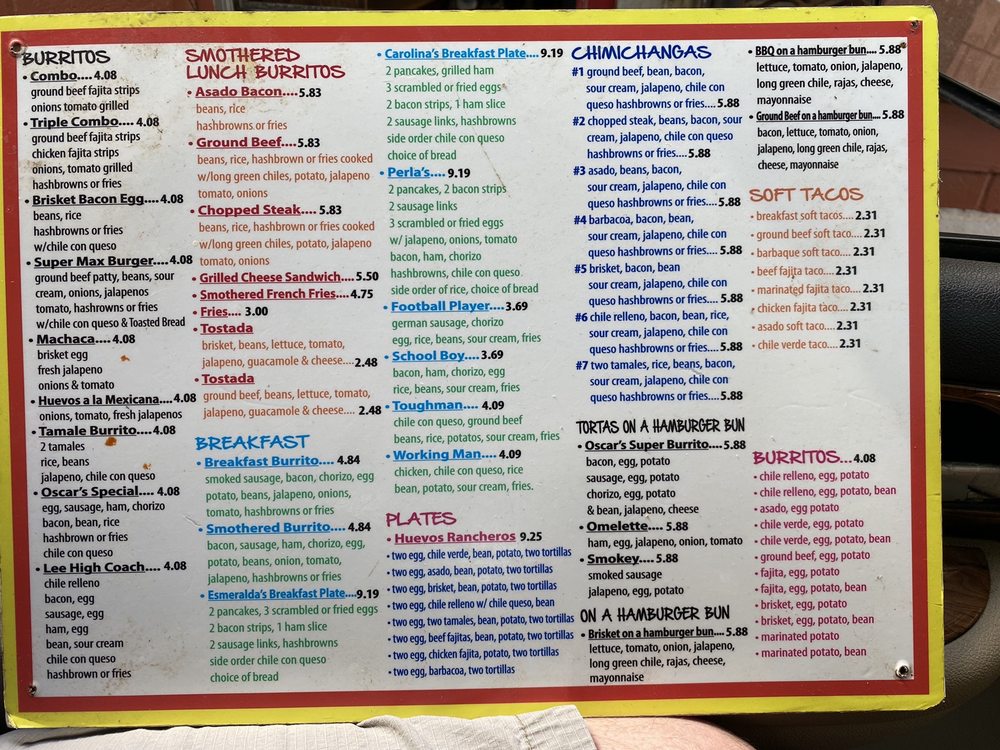 BURRITOS
• Combo.... 4.08
ground beef fajita strips
onions tomato grilled
• Triple Combo.... 4.08
ground beef fajita strips
chicken fajita strips
onions, tomato grilled
hashbrowns or fries
• Brisket Bacon Egg.... 4.08
beans, rice
hashbrowns or fries
w/chile con queso
• Super Max Burger.... 4.08
ground beef patty, beans, sour
cream, onions, jalapenos
tomato, hashrowns or fries
w/chile con queso & Toasted Bread
• Machaca.... 4.08
brisket egg
fresh jalapeno
onions & tomato
• Huevos a la Mexicana.... 4.08
onions, tomato, fresh jalapenos
• Tamale Burrito.... 4.08
2 tamales
rice, beans
jalapeno, chile con queso
• Oscar's Special.... 4.08
egg, sausage, ham, chorizo
bacon, bean, rice
hashbrown or fries
chile con queso
• Lee High Coach.... 4.08
chile relleno
bacon, egg
sausage, egg
ham, egg
bean, sour cream
chile con queso
hashbrown or fries
SMOTHERED
LUNCH BURRITOS
• Asado Bacon.... 5.83
beans, rice
hashbrowns or fries
• Ground Beef.... 5.83
beans, rice, hashbrown or fries cooked
w/long green chiles, potato, jalapeno
tomato, onions
• Chopped Steak.... 5.83
beans, rice, hashbrown or fries cooked
w/long green chiles, potato, jalapeno
tomato, onions
• Grilled Cheese Sandwich.... 5.50
• Smothered French Fries.... 4.75
• Fries.... 3.00
• Tostada
brisket, beans, lettuce, tomato,
jalapeno, guacamole & cheese.... 2.48
• Tostada
ground beef, beans, lettuce, tomato,
jalapeno, guacamole & cheese.... 2.48
BREAKFAST
• Breakfast Burrito.... 4.84
smoked sausage, bacon, chorizo, egg
potato, beans, jalapeno, onions,
tomato, hashbrowns or fries
• Smothered Burrito.... 4.84
bacon, sausage, ham, chorizo, egg,
potato, beans, onion, tomato,
jalapeno, hashbrowns or fries
• Esmeralda's Breakfast Plate....9.19
2 pancakes, 3 scrambled or fried eggs
2 bacon strips, 1 ham slice
2 sausage links, hashbrowns
side order chile con queso
choice of bread
• Carolina's Breakfast Plate.... 9.19
2 pancakes, grilled ham
3 scrambled or fried eggs
2 bacon strips, 1 ham slice
2 sausage links, hashbrowns
side order chile con queso
choice of bread
• Perla's.... 9.19
2 pancakes, 2 bacon strips
2 sausage links
3 scrambled or fried eggs
w/ jalapeno, onions, tomato
bacon, ham, chorizo
hashbrowns, chile con queso
side order of rice, choice of bread
• Football Player.... 3.69
german sausage, chorizo
egg, rice, beans, sour cream, fries
• School Boy.... 3.69
bacon, ham, chorizo, egg
rice, beans, sour cream, fries
• Toughman.... 4.09
chile con queso, ground beef
beans, rice, potatos, sour cream, fries
• Working Man.... 4.09
chicken, chile con queso, rice
bean, potato, sour cream, fries.
PLATES
• Huevos Rancheros 9.25
• two egg, chile verde, bean, potato, two tortillas
• two egg, asado, bean, potato, two tortillas
• two egg, brisket, bean, potato, two tortillas
• two egg, chile relleno w/ chile queso, bean
• two egg, two tamales, bean, potato, two tortillas
• two egg, beef fajitas, bean, potato, two tortillas
• two egg, chicken fajita, potato, two tortillas
• two egg, barbacoa, two tortillas
CHIMICHANGAS
#1 ground beef, bean, bacon,
sour cream, jalapeno, chile con
queso hashbrowns or fries.... 5.88
#2 chopped steak, beans, bacon, sour
cream, jalapeno, chile con queso
hashbrowns or fries.... 5.88
#3 asado, beans, bacon,
sour cream, jalapeno, chile con
queso hashbrowns or fries.... 5.88
#4 barbacoa, bacon, bean,
sour cream, jalapeno, chile con
queso hashbrowns or fries.... 5.88
#5 brisket, bacon, bean
sour cream, jalapeno, chile con
queso hashbrowns or fries.... 5.88
#6 chile relleno, bacon, bean, rice,
sour cream, jalapeno, chile con
queso hashbrowns or fries.... 5.88
#7 two tamales, rice, beans, bacon,
sour cream, jalapeno, chile con
queso hashbrowns or fries.... 5.88
TORTAS ON A HAMBURGER BUN
• Oscar's Super Burrito.... 5.88
bacon, egg, potato
sausage, egg, potato
chorizo, egg, potato
& bean, jalapeno, cheese
• Omelette.... 5.88
ham, egg, jalapeno, onion, tomato
• Smokey.... 5.88
smoked sausage
jalapeno, egg, potato
ON A HAMBURGER BUN
• Brisket on a hamburger bun.... 5.88
lettuce, tomato, onion, jalapeno,
long green chile, rajas, cheese,
mayonnaise
• BBQ on a hamburger bun.... 5.88
lettuce, tomato, onion, jalapeno,
long green chile, rajas, cheese,
mayonnaise
• Ground Beef on a hamburger bun.... 5.88
bacon, lettuce, tomato, onion,
jalapeno, long green chile, rajas,
cheese, mayonnaise
SOFT TACOS
• breakfast soft tacos.... 2.31
• ground beef soft taco.... 2.31
• barbaque soft taco.... 2.31
• beef fajita taco.... 2.31
• marinated fajita taco.... 2.31
• chicken fajita taco.... 2.31
• asado soft taco.... 2.31
• chile verde taco.... 2.31
BURRITOS... 4.08
• chile relleno, egg, potato
• chile relleno, egg, potato, bean
• asado, egg, potato
• chile verde, egg, potato
• chile verde, egg, potato, bean
• ground beef, egg, potato
• fajita, egg, potato
• fajita, egg, potato, bean
• brisket, egg, potato
• brisket, egg, potato, bean
• marinated potato
• marinated potato, bean